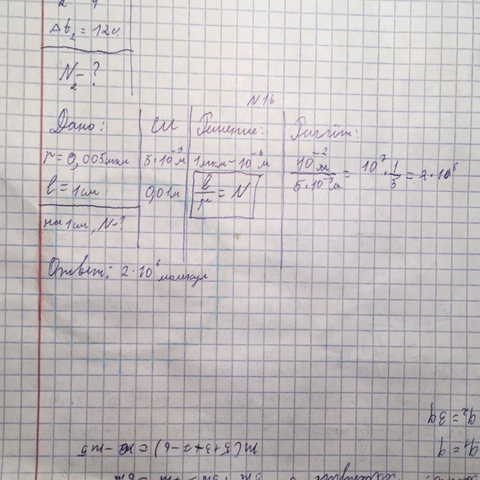 Δt₂ = 12 с.
N₂ - ?
N 16
Дано:
r = 0,005 мкм
l = 1 см
на 1 см, N - ?
СИ
5·10⁻⁹ м
0,01 м
Решение:
1 мкм - 10⁻⁶ м
l/r = N
Расчёт:
10⁻² м / 5·10⁻⁹ м = 10⁷ · 1/5 = 2·10⁶
Ответ: 2·10⁶ молекул
q₁ = q
q₂ = 3q